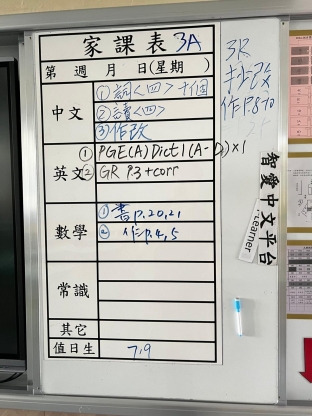 家課表 3A
第 週 月 日(星期 )
中文
① 詞<四>十個
② 讀<四>
③ 作改
英文
① PGE(A) Dict 1 (A-D) x1
② GR P.3 + corr
數學
① 書 p.20,21
② 作 p.4,5
常識
其它
值日生 7,9
3R
作 P.8
智愛中文平台
eLearner